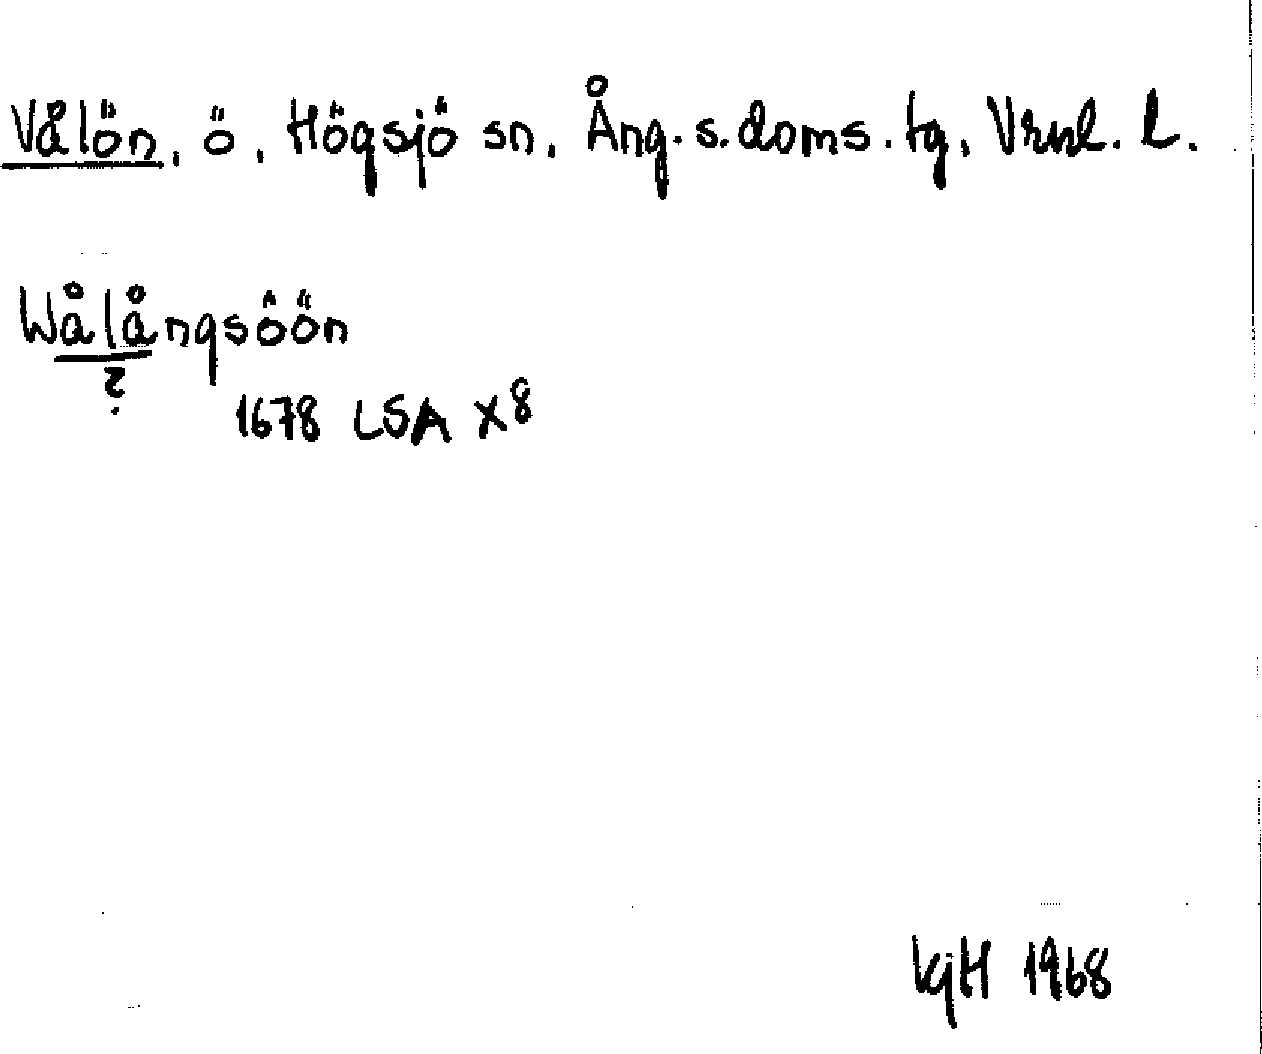 Vålön, ö, Högsjö sn, Ång. s. doms. tg, Vrnl. l.
Wålångsôön
?
1678 LSA X8
KgH 1968